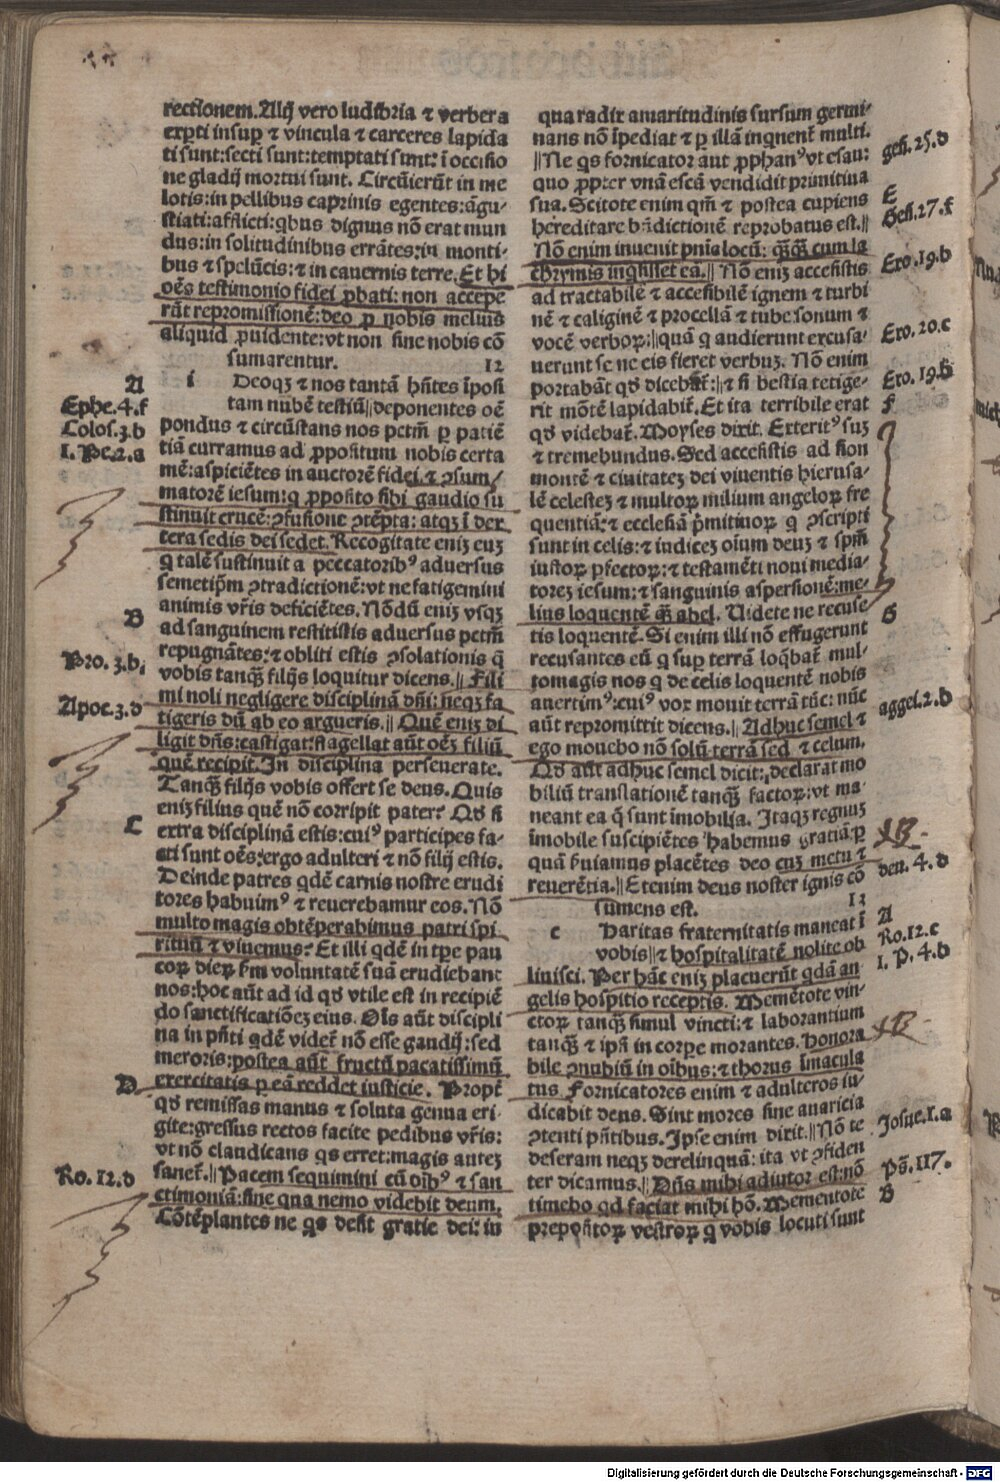 rectionem. Alij vero ludibria ⁊ verbera
exp̱ti insup̱ ⁊ vincula ⁊ carceres lapida
ti sunt: secti sunt: temptati sunt: ī occisio
ne gladij mortui sunt. Circūierūt in me
lotis: in pellibus caprinis egentes: āgu-
stiati: afflicti: qbus dignus nō erat mun
dus: in solitudinibus errātes: in monti-
bus ⁊ spelūcis: ⁊ in cauernis terre. Et hi
oēs testimonio fidei ꝓbati: non accepe
rūt repromissionē: deo ꝓ nobis melius
aliquid ꝓuidente: vt non sine nobis cō
sumarentur. 12
A
i Deoqꝫ ⁊ nos tantā hn̄tes īposi
Ephe. 4. f
tam nubē testiū || deponentes oē
Colos. 3. b
pondus ⁊ circūstans nos pctm̄ ꝑ patiē
1. Pe. 2. a
tiā curramus ad ꝓpositum nobis certa
mē: aspiciētes in auctorē fidei ⁊ ꝯsum/
matorē iesum: q ꝓposito sibi gaudio su
stinuit crucē: ꝯfusione ꝯtēpta: atqꝫ ī dex
tera sedis dei sedet. Recogitate eniꝫ euꝫ
q talē sustinuit a peccatoribꝰ aduersus
semetip̄m ꝯtradictionē: vt ne fatigemini
animis vr̄is deficiētes. Nōdū eniꝫ vsqꝫ
B
ad sanguinem restitistis aduersus pctm̄
repugnātes: ⁊ obliti estis ꝯsolationis q̄
Pro. 3. b
vobis tanqꝫ filijs loquitur dicens. || Fili
mi noli negligere disciplinā dn̄i: neqꝫ fa
Apoc. 3. d
tigeris dū ab eo argueris. || Quē eniꝫ di
ligit dn̄s: castigat: flagellat aūt oēꝫ filiū
quē recipit. In disciplina perseuerate.
Tanqꝫ filijs vobis offert se deus. Quis
eniꝫ filius quē nō corripit pater? Qd si
C
extra disciplinā estis: cuiꝰ participes fa-
cti sunt oēs: ergo adulteri ⁊ nō filij estis.
Deinde patres qdē carnis nostre erudi
tores habuimꝰ ⁊ reuerebamur eos. Nō
multo magis obtēperabimus patri spi
rituū ⁊ viuemus? Et illi qdē in tp̄e pau
coꝝ dieꝝ ẜm voluntatē suā erudiebant
nos: hoc aūt ad id qd vtile est in recipiē
do sanctificationeꝫ eius. Ois aūt discipli
na in pn̄ti qdē videt̄ nō esse gaudij: sed
meroris: postea aūt fructū pacatissimū
D
exercitatis ꝑ eā reddet iusticie. Propt̄
qd remissas manus ⁊ soluta genua eri-
gite: gressus rectos facite pedibus vr̄is:
vt nō claudicans qs erret: magis auteꝫ
Ro. 12. d
sanet̄. || Pacem sequimini cū oibꝰ ⁊ san
ctimoniā: sine qua nemo videbit deum.
Cōtēplantes ne qs desit gratie dei: in
qua radix amaritudinis sursum germi-
nans nō īpediat ⁊ ꝑ illā inqnent̄ multi.
|| Ne qs fornicator aut ꝓphanꝰ vt esau:
geñ. 25. d
quo ꝓpter vnā escā vendidit primitiua
E
sua. Scitote enim qm̄ ⁊ postea cupiens
Geñ. 27. f
hereditare bn̄dictionē reprobatus est. ||
Nō enim inuenit pn̄ie locū: qꝫqꝫ cum la
chrymis inqsisset eā. || Nō eniꝫ accessistis
Exo. 19. b
ad tractabilē ⁊ accessibilē ignem ⁊ turbi
nē ⁊ caliginē ⁊ procellā ⁊ tube sonum ⁊
vocē verboꝝ: || quā q audierunt excusa-
Exo. 20. c
uerunt se ne eis fieret verbuꝫ. Nō enim
portabāt qd dicebat̄: || ⁊ si bestia tetige-
Exo. 19. b
rit mōtē lapidabit̄. Et ita terribile erat
F
qd videbat̄. Moyses dixit. Exteritꝰ suꝫ
⁊ tremebundus. Sed accessistis ad sion
montē ⁊ ciuitateꝫ dei viuentis hierusa-
lē celesteꝫ ⁊ multoꝝ milium angeloꝝ fre
quentiā: ⁊ ecclesiā p̄mitiuoꝝ q ꝯscripti
sunt in celis: ⁊ iudiceꝫ oium deuꝫ ⁊ spm̄
iustoꝝ ꝑfectoꝝ: ⁊ testamēti noui media-
toreꝫ iesum: ⁊ sanguinis aspersionē: me-
lius loquentē qꝫ abel. Uidete ne recuse
G
tis loquentē. Si enim illi nō effugerunt
recusantes eū q sup̱ terrā loqbat̄ mul-
tomagis nos q de celis loquentē nobis
auertimꝰ: cuiꝰ vox mouit terrā tūc: nūc
aggei. 2. b
aūt repromittit dicens. || Adhuc semel ⁊
ego mouebo nō solū terrā sed ⁊ celum.
Qd aūt adhuc semel dicit: declarat mo
biliū translationē tanqꝫ factoꝝ: vt ma-
neant ea q̄ sunt īmobilia. Itaqꝫ regnuꝫ
īmobile suscipiētes habemus gratiā: ꝑ
NB.
quā ẜuiamus placētes deo cuꝫ metu ⁊
deu. 4. d
reuerētia. || Etenim deus noster ignis cō
sumens est. 13
c Haritas fraternitatis maneat ī
A
vobis || ⁊ hospitalitatē nolite ob
Ro. 12. c
liuisci. Per hāc eniꝫ placuerūt qdā an
1. P. 4. b
gelis hospitio receptis. Memētote vin-
ctoꝝ tanqꝫ simul vincti: ⁊ laborantium
tanqꝫ ⁊ ip̄i in corpe morantes. Honora
NB.
bile ꝯnubiū in oibus: ⁊ thorus īmacula
tus. Fornicatores enim ⁊ adulteros iu-
dicabit deus. Sint mores sine auaricia
ꝯtenti pn̄tibus. Ipse enim dixit. || Nō te
Josue. 1. a
deseram neqꝫ derelinquā: ita vt ꝯfiden
ter dicamus. || Dn̄s mihi adiutor est: nō
Ps̄. 117.
timebo qd faciat mihi hō. Mementote
B
prepositoꝝ vestroꝝ q vobis locuti sunt
Digitalisierung gefördert durch die Deutsche Forschungsgemeinschaft - DFG